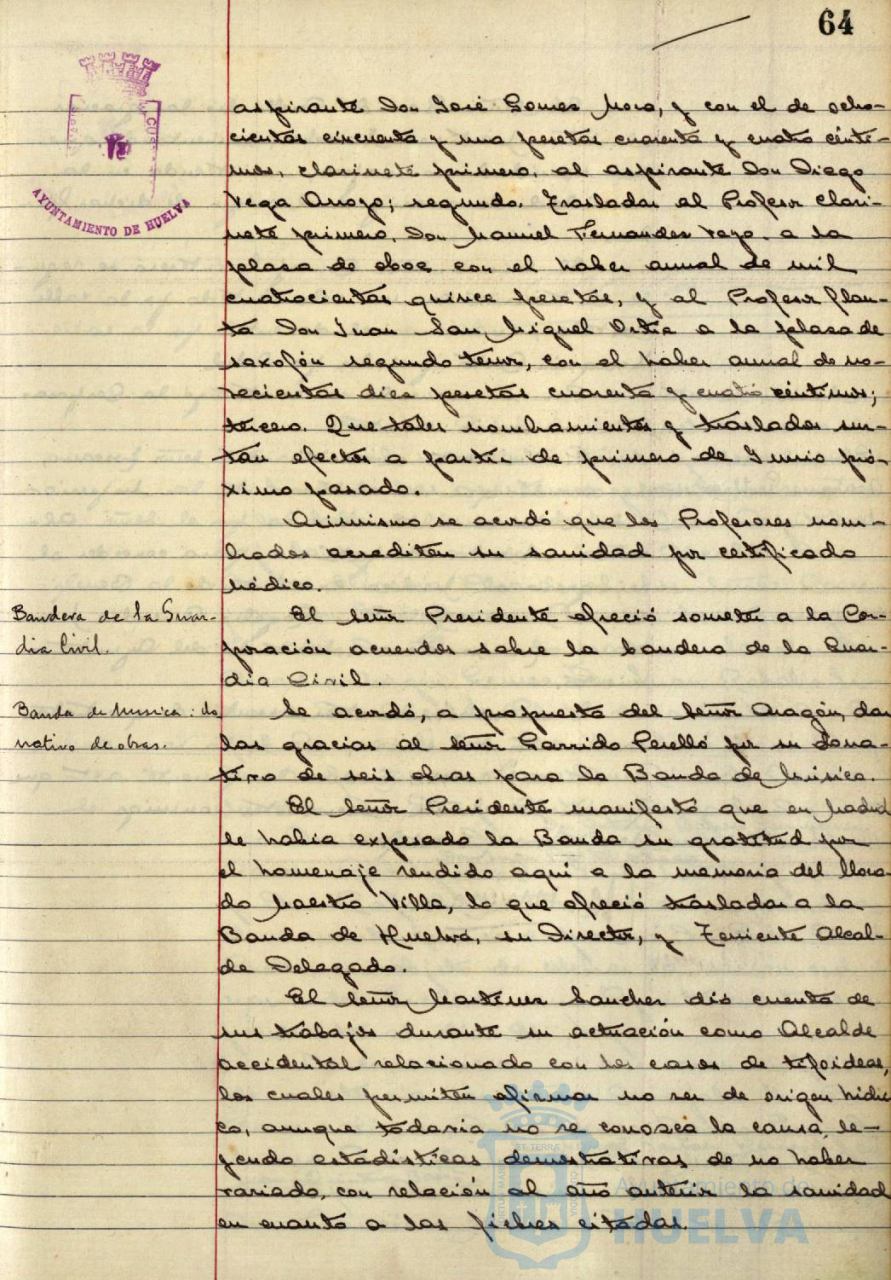 64
AYUNTAMIENTO DE HUELVA
aspirante Don José Gomez Moro, y con el de ocho-
cientas cincuenta y una pesetas cuarenta y cuatro cénti-
mos, clarinete primero, al aspirante Don Diego
Vega Arroyo; segundo. Trasladar al Profesor clari-
nete primero, Don Manuel Fernandez Vazo, a la
plaza de oboe, con el haber anual de mil
cuatrocientas quince pesetas, y al Profesor flau-
ta Don Juan San Miguel Ortiz a la plaza de
saxofón segundo tenor, con el haber anual de no-
vecientas diez pesetas cuarenta y cuatro céntimos;
tercero. Que tales nombramientos y traslados sur-
tan efectos a partir de primero de Junio pró-
ximo pasado.
Asimismo se acordó que los Profesores nom-
brados acrediten su sanidad por certificado
médico.
Bandera de la Guar-
dia Civil.
El Señor Presidente ofreció someter a la Cor-
poración acuerdos sobre la bandera de la Guar-
dia Civil.
Banda de Musica: do
nativo de obras.
Se acordó, a propuesta del Señor Aragón, dar
las gracias al Señor Garrido Perelló por su dona-
tivo de seis obras para la Banda de Música.
El Señor Presidente manifestó que en Madrid
le habia expesado la Banda su gratitud por
el homenaje rendido aquí a la memoria del llora-
do Maestro Villa, lo que ofreció trasladar a la
Banda de Huelva, su Director, y Teniente Alcal-
de Delegado.
El Señor Martinez Sanchez dió cuenta de
sus trabajos durante su actuación como Alcalde
accidental relacionado con los casos de tifoideas,
los cuales permiten afirmar no ser de origen hidri
co, aunque todavia no se conozca la causa, le-
yendo estadísticas demostrativas de no haber
variado, con relación al año anterior la sanidad
en cuanto a las fiebres citadas.
Ayuntamiento de
HUELVA